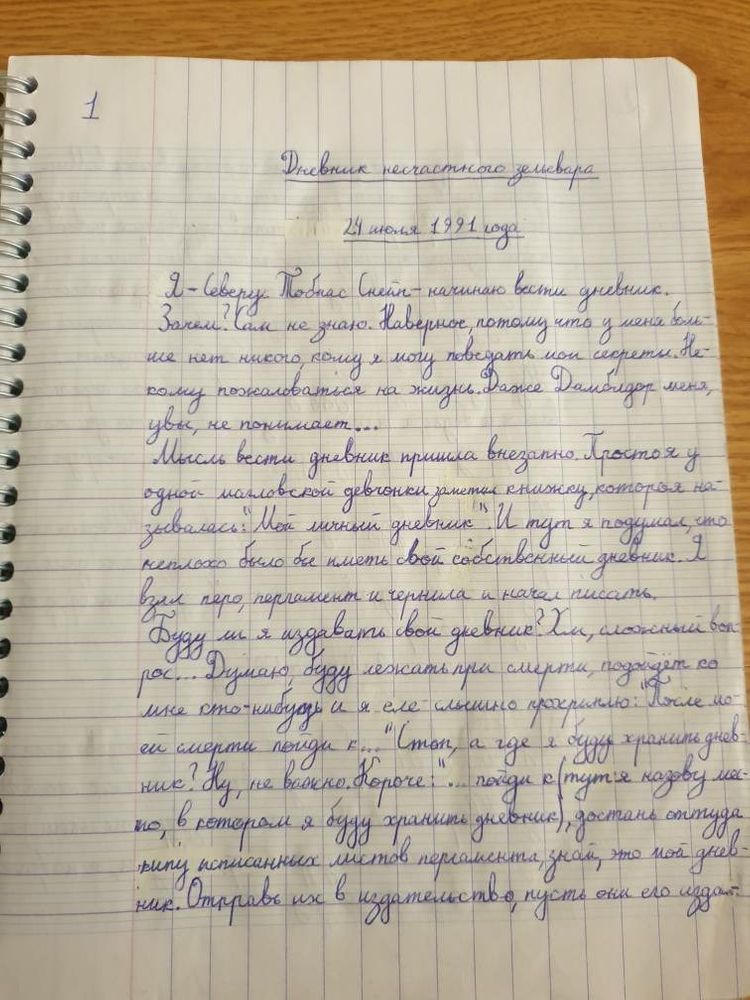 1
Дневник несчастного зельевара
24 июля 1991 года
Я - Северус Тобиас Снейп - начинаю вести дневник.
Зачем? Сам не знаю. Наверное, потому что у меня боль-
ше нет никого, кому я могу поведать мои секреты. Не-
кому пожаловаться на жизнь. Даже Дамблдор меня,
увы, не понимает...
Мысль вести дневник пришла внезапно. Просто я у
одной магловской девчонки заметил книжку, которая на-
зывалась: "Мой личный дневник". И тут я подумал, что
неплохо было бы иметь свой собственный дневник. Я
взял перо, пергамент и чернила и начал писать.
Буду ли я издавать свой дневник? Хм, сложный воп-
рос... Думаю, буду лежать при смерти, подойдёт ко
мне кто-нибудь и я еле слышно прохриплю: "После мо-
ей смерти пойди к..." Стоп, а где я буду хранить днев-
ник? Ну, не важно. Короче: "... пойди к (тут я назову мес-
то, в котором я буду хранить дневник), достань оттуда
кипу исписанных листов пергамента, знай, это мой днев-
ник. Отправь их в издательство, пусть они его издат-